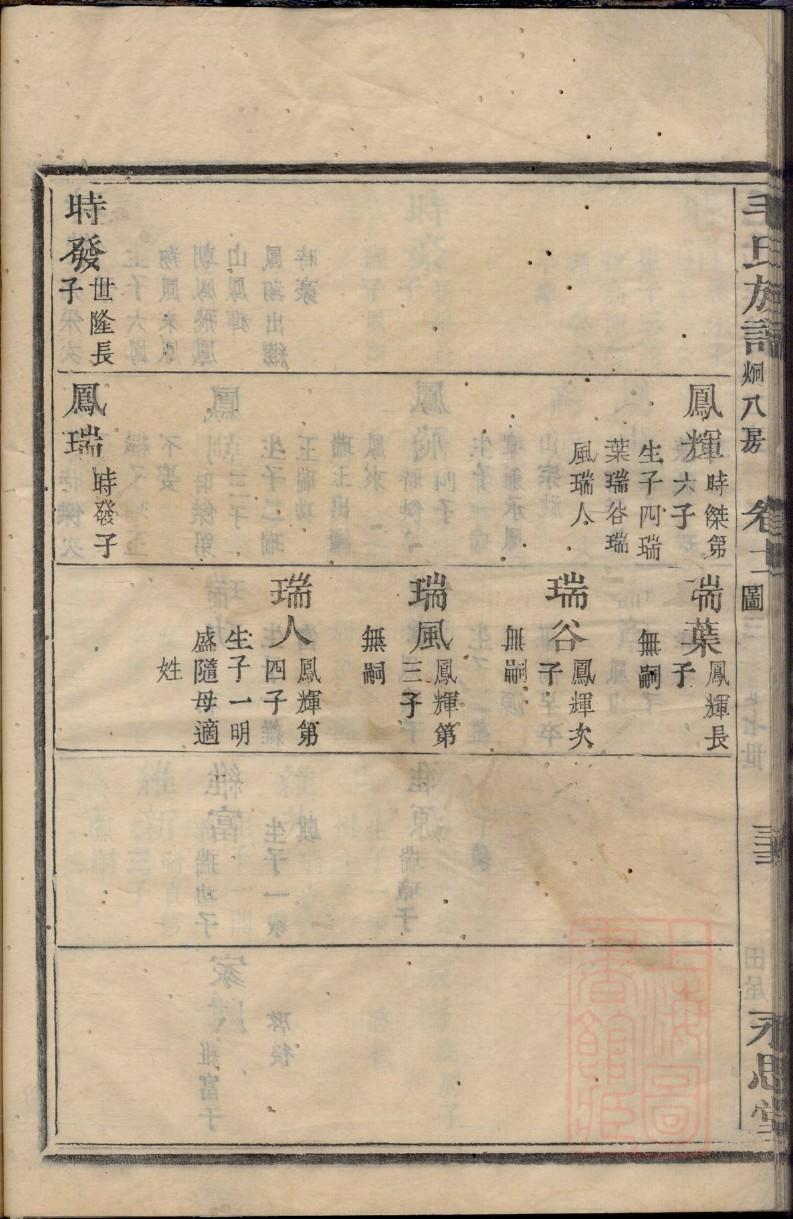 毛氏族譜
烱八房
卷十一
圖三
三三
永思堂
鳳輝
時傑第
六子
生子四瑞
葉瑞谷瑞
風瑞人
瑞葉
鳳輝長
子
無嗣
瑞谷
鳳輝次
子
無嗣
瑞風
鳳輝第
三子
無嗣
瑞人
鳳輝第
四子
生子一明
盛隨母適
姓
時發
世隆長
子
鳳瑞
時發子
上海圖
書館藏